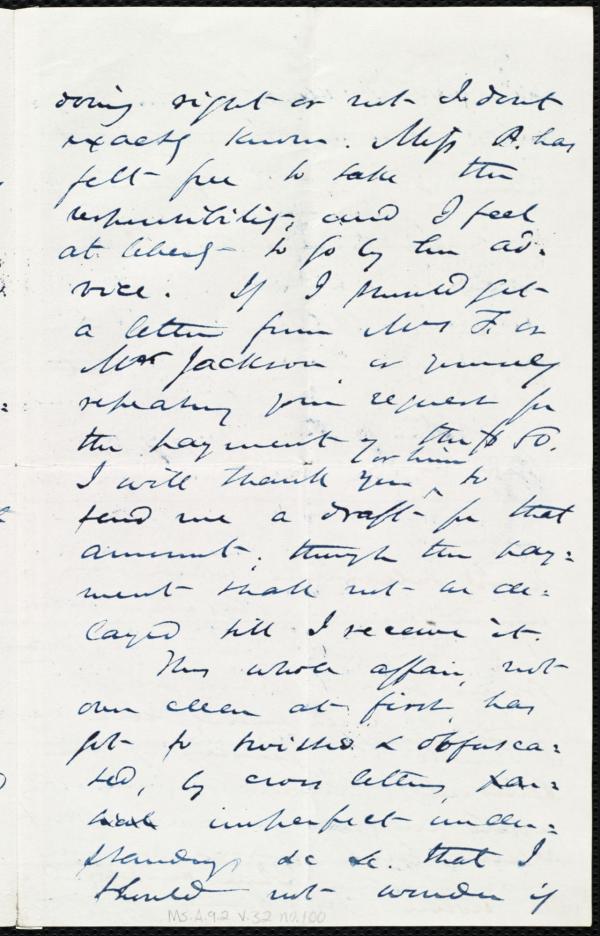 doing right or not I dont
exactly know. Miss P. has
felt free to take the
responsibility, and I feel
at liberty to go by her ad-
vice. If I should get
a letter from Mrs F. or
Mr Jackson, or yourself
repeating your request for
the payment of the $50.
I will thank you ^ or him to
send me a draft for that
amount; though the pay=
ment shall not be de=
layed till I receive it.
This whole affair, not
over clear at first, has
got so twisted & obfusca=
ted, by cross letters,
imperfect under=
standings &c &c. that I
should not wonder if
MS.A.9.2 V.32 no.100